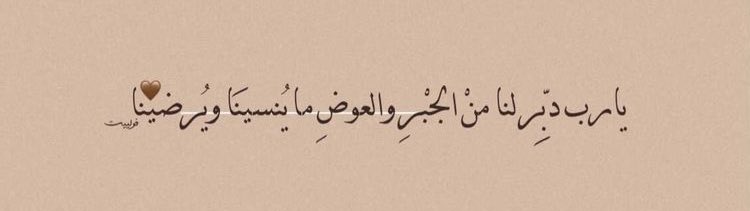 يا رب دبِّر لنا منْ الجبْرِ والعوضِ ما يُنسينَا ويُرضينَا